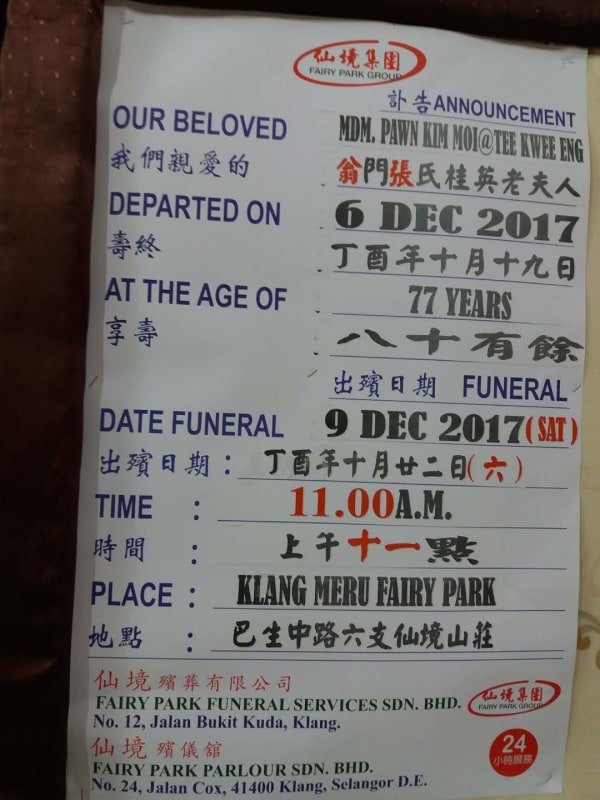 仙境集團
FAIRY PARK GROUP
訃告ANNOUNCEMENT
OUR BELOVED MDM. PAWN KIM MOI@TEE KWEE ENG
我們親愛的 翁門張氏桂英老夫人
DEPARTED ON 6 DEC 2017
壽終 丁酉年十月十九日
AT THE AGE OF 77 YEARS
享壽 八十有餘
出殯日期 FUNERAL
DATE FUNERAL 9 DEC 2017(SAT)
出殯日期： 丁酉年十月廿二日(六)
TIME : 11.00A.M.
時間 : 上午十一點
PLACE : KLANG MERU FAIRY PARK
地點 : 巴生中路六支仙境山莊
仙境殯葬有限公司
FAIRY PARK FUNERAL SERVICES SDN. BHD.
No. 12, Jalan Bukit Kuda, Klang.
仙境集團
FAIRY PARK GROUP
仙境殯儀舘
FAIRY PARK PARLOUR SDN. BHD.
No. 24, Jalan Cox, 41400 Klang, Selangor D.E.
24
小時服務